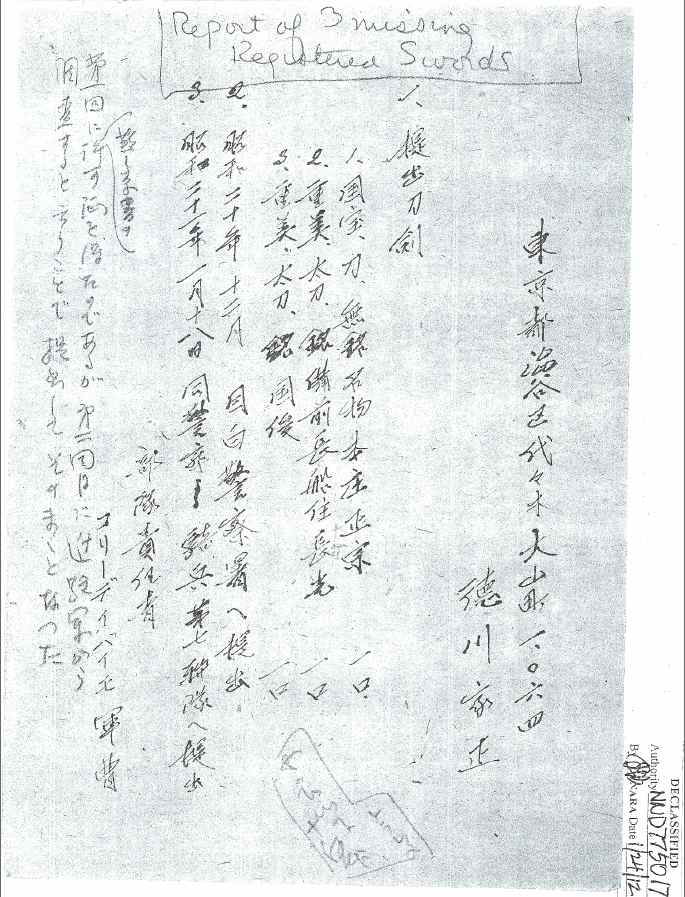 Report of 3 missing
Registered Swords
東京都渋谷区代々木大山町一〇六四
德川家正
一、提出刀劍
1. 国宝、刀、無銘名物本庄正宗 一口
2. 重美、太刀、銘備前長船住長光 一口
3. 重美、太刀、銘国俊 一口
2. 昭和二十年十二月 目白警察署へ提出
3. 昭和二十一年一月十八日 同警察ヨリ騎兵第七聯隊へ提出
部隊責任者
コリーデイバイモ 軍曹
第一回に許可証を得たのであるが第二回目に進駐軍から
調査すると云うことで提出してそのまゝとなった
DECLASSIFIED
Authority NND775017
By NARA Date 1/24/12